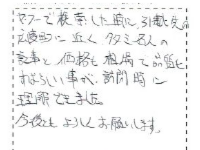 ヤフーで検索した時に、引越し先の
広島に近く タタミ名人の
記事と 価格も相場で品質も
すばらしい事が、訪問時に
理解できました。
今後とも よろしくお願いします。